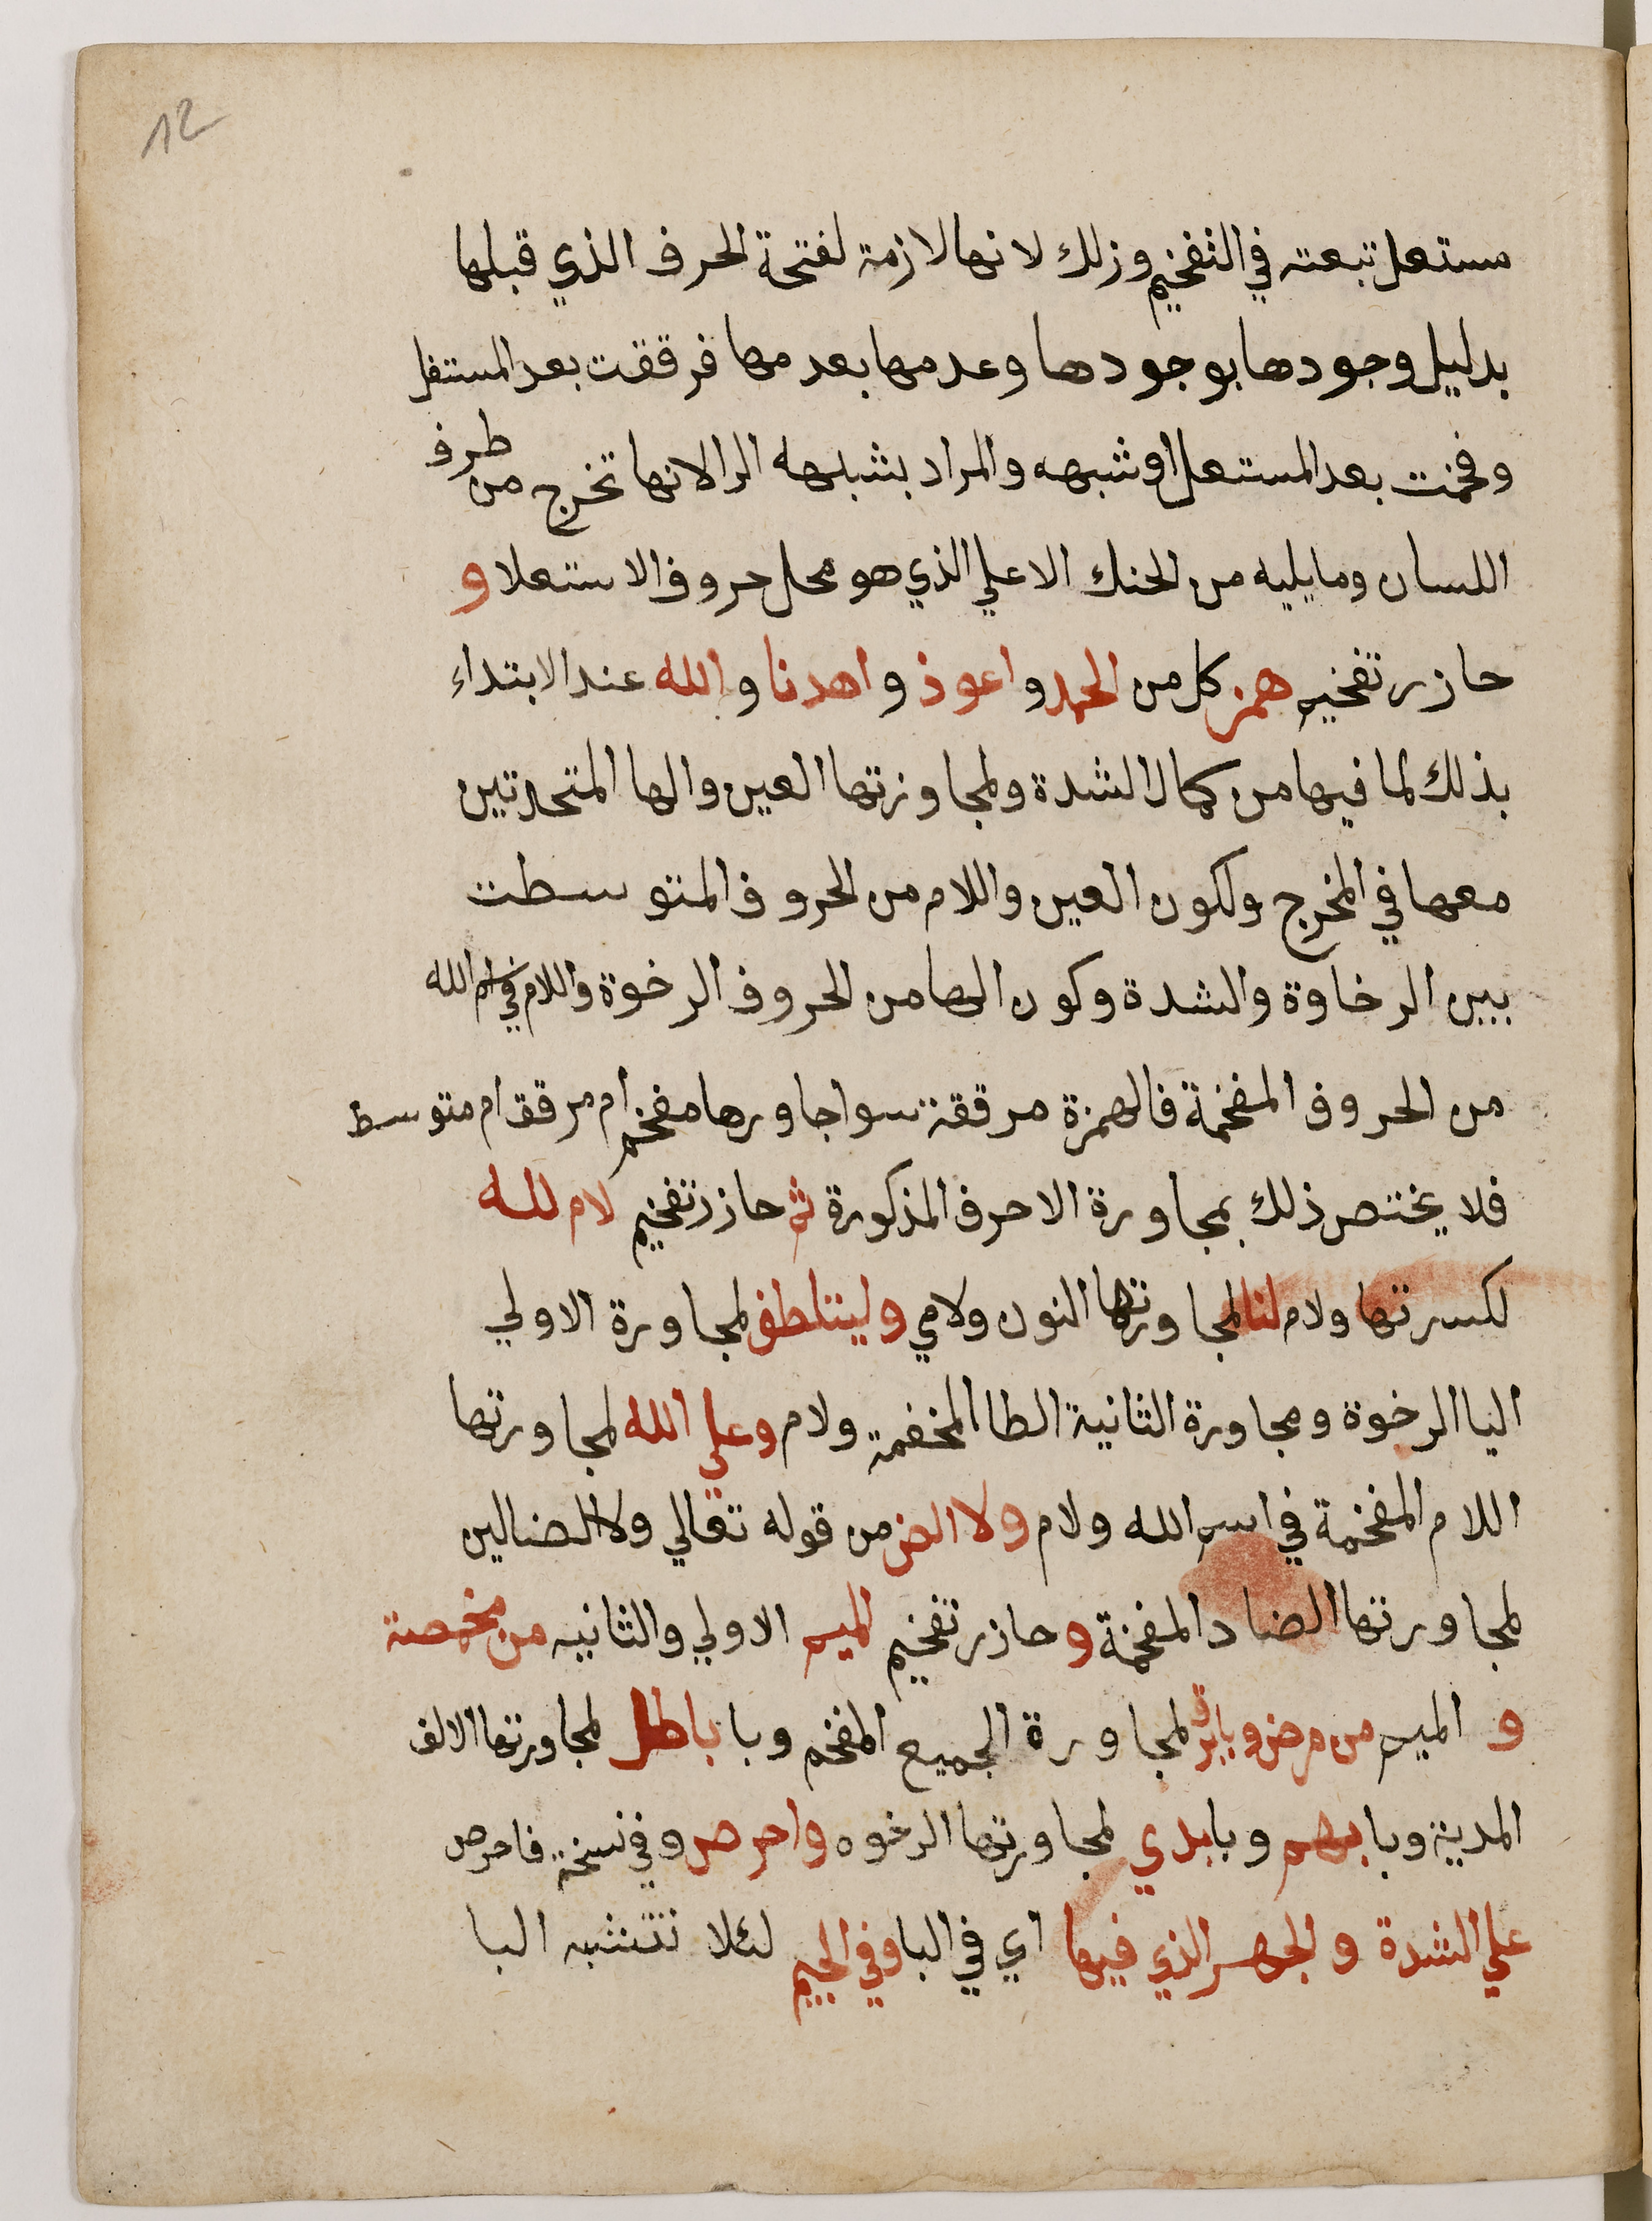 12
مستعل تبعته في التفخيم وزلك لانها لازمة لفتحة الحرف الذي قبلها
بدليل وجودها بوجودها وعدمها بعدمها فرققت بعد المستفل
وفخمت بعد المستعل او شبهه والمراد بشبهه الرا لانها تخرج من طرف
اللسان ومايليه من الحنك الاعلي الذي هو محل حروف الاستعلا و
حازر تفخيم همز كل من الحمد و اعوذ و اهدنا و الله عند الابتداء
بذلك لما فيها من كمال الشدة ولمجاوزتها العين والها المتحدتين
معها في المخرج ولكون العين واللام من الحروف المتوسطت
بين الرخاوة والشدة وكون الها من الحروف الرخوة واللام في اسم الله
من الحروف المفخمة فالهمزة مرققة سوا جاورها مفخم ام مرقق ام متوسط
فلا يختص ذلك بمجاورة الاحرف المذكورة ثم حازر تفخيم لام لله
لكسرتها ولام لنا لمجاورتها النون ولامي وليتلطف لمجاورة الاولي
اليا الرخوة ومجاورة الثانية الطا المخفمة ولام وعلي الله لمجاورتها
اللام المفخمة في اسم الله ولام ولا الض من قوله تعالي ولا الضالين
لمجاورتها الضاد المفخمة و حازر تفخيم الميم الاولي والثانيه من مخمصة
و الميم من مرض وبابرق لمجاورة الجميع المفخم وبا باطل لمجاورتها الالف
المدينة وبا بهم وبا بذي لمجاورتها الرخوه واحرص وفي نسخة فاحرص
علي الشدة والجهر الذي فيها اي في البا وفي الجيم لئلا تتشبه البا